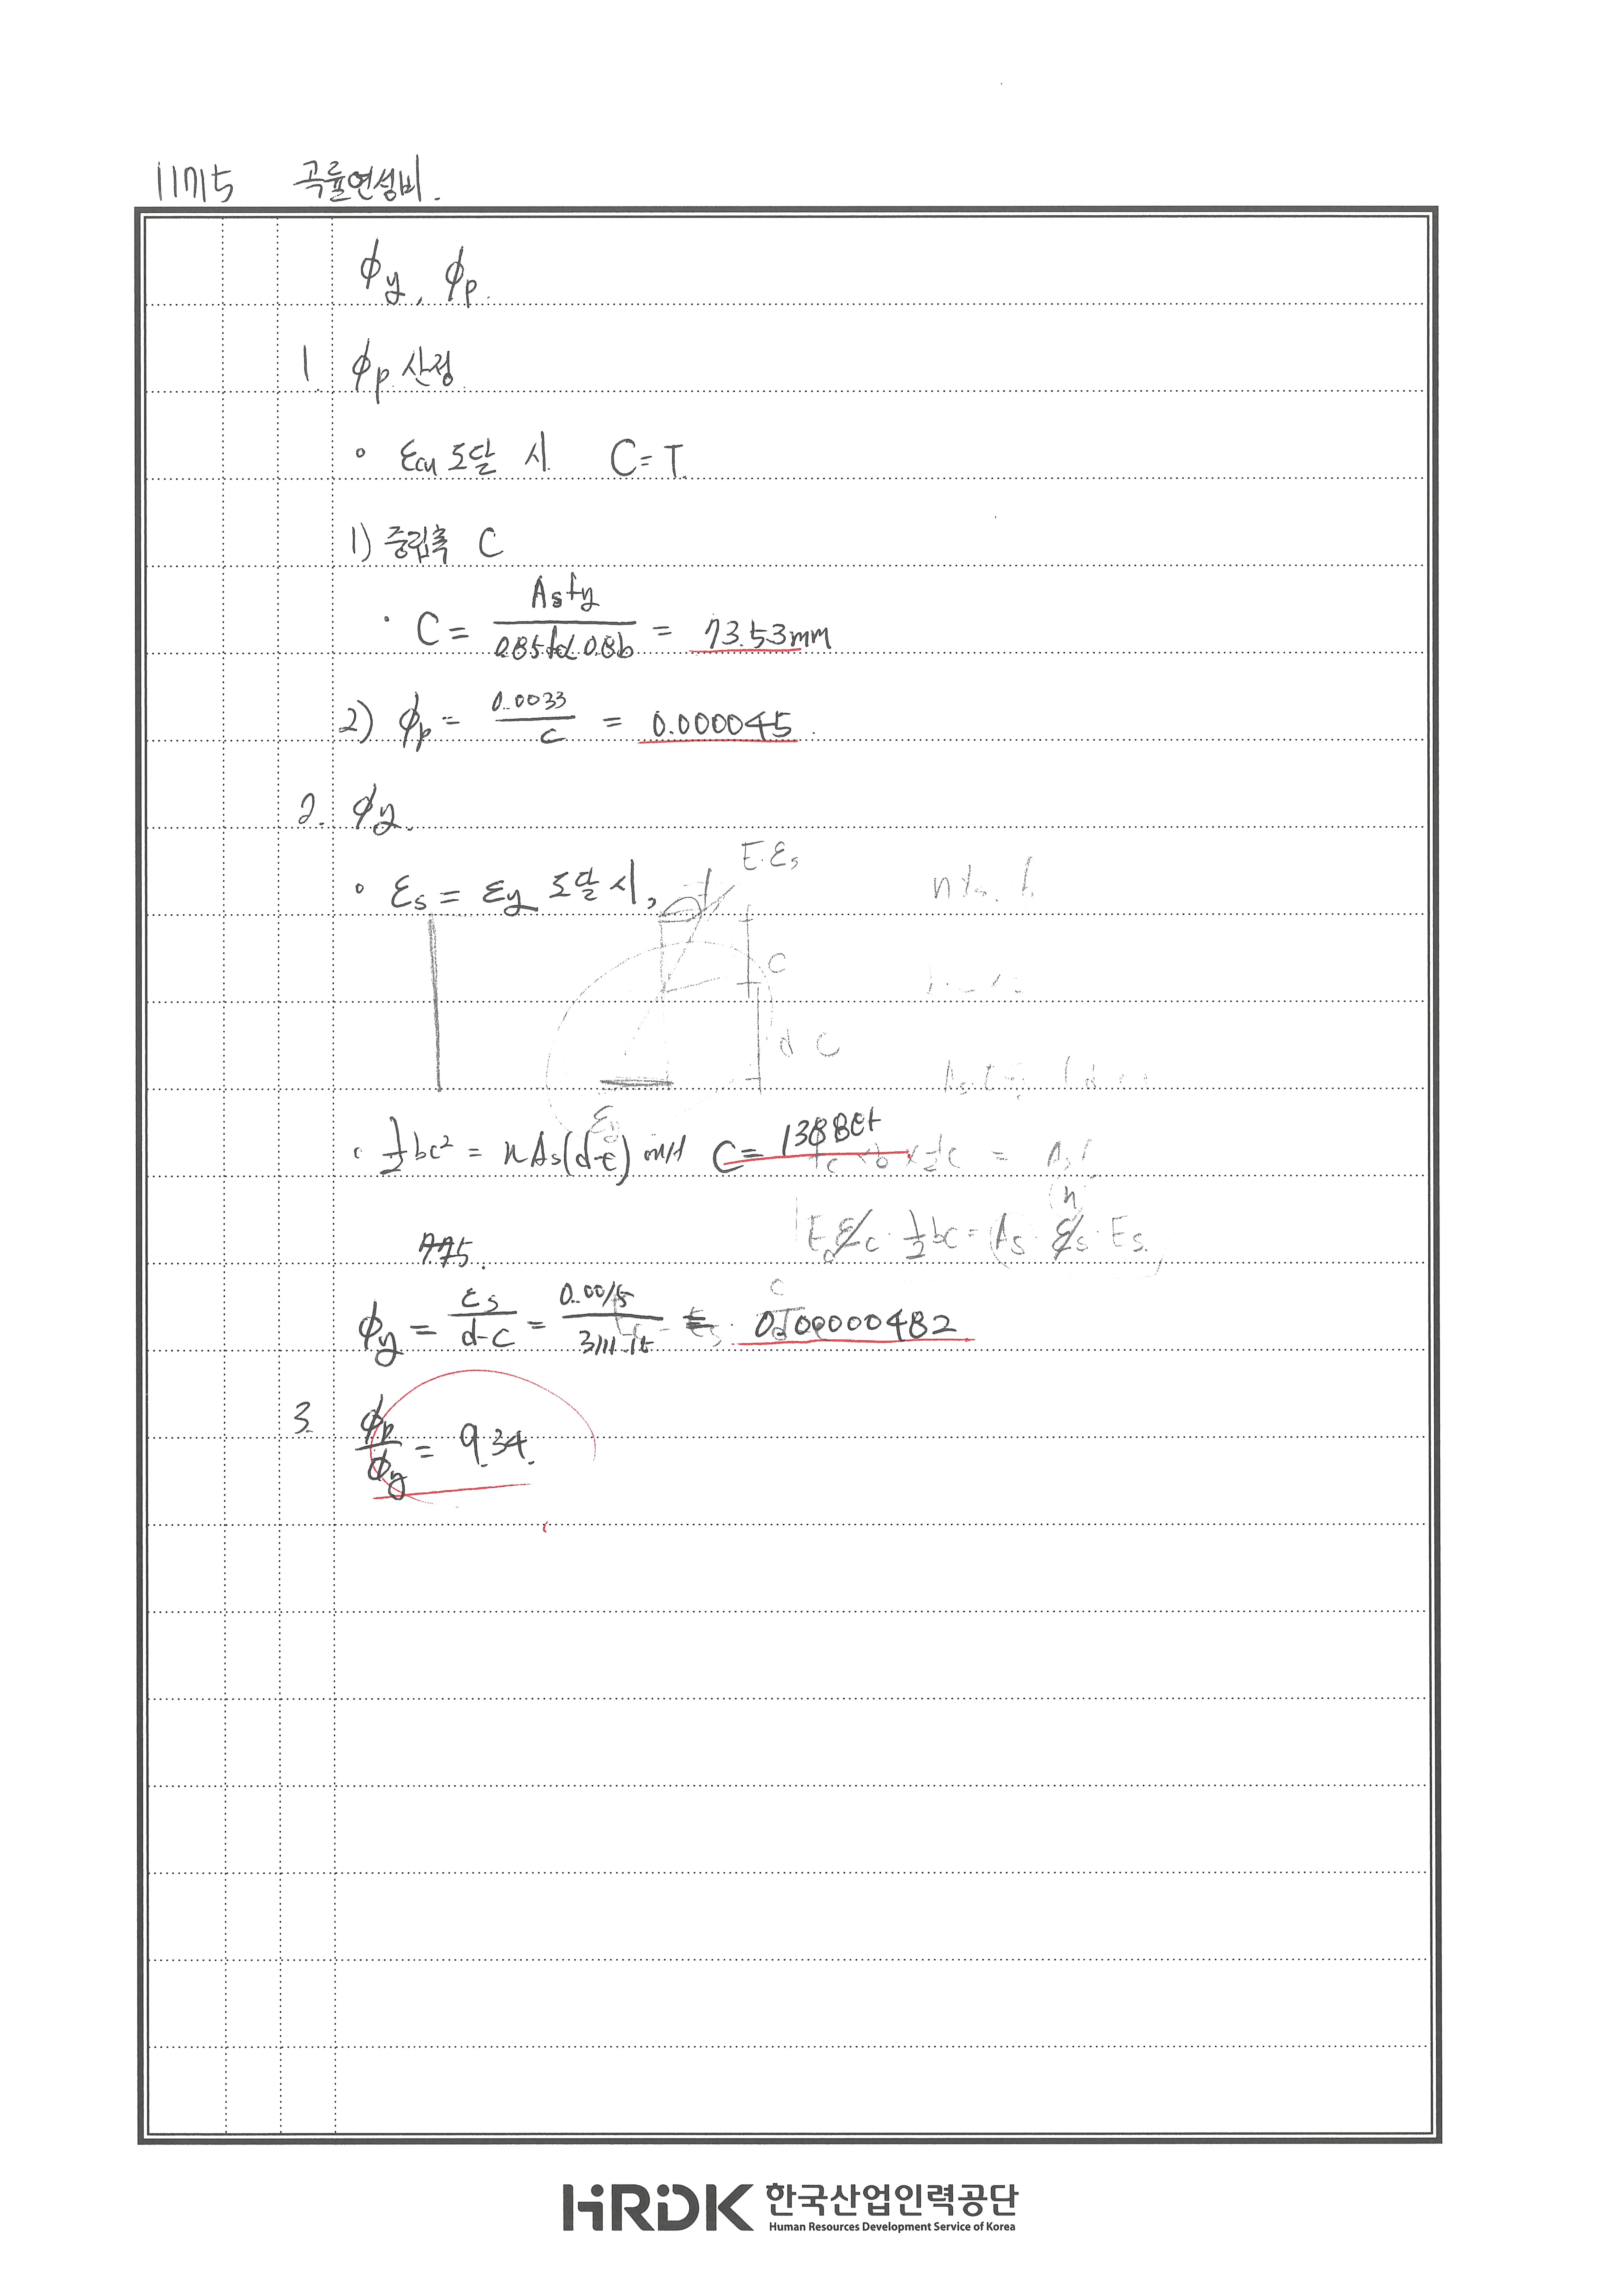 117.5 곡률연성비.
φy, φp.
1. φp 산정
∘ εcu 도달 시 C = T.
1) 중립축 C
· C = As fy / 0.85fck 0.8b = 73.53mm
2) φp = 0.0033 / c = 0.000045.
2. φy.
∘ εs = εy 도달 시,
E·εs
c
d c
εy
∘ 1/2 bc² = nAs(d-c) 에서 C = 138.8
Ec εc · 1/2 bc = (As · εs · Es)
φy = εs / d-c = 0.0015 / = 0.00000482
3. φp / φy = 9.34.
HRDK 한국산업인력공단
Human Resources Development Service of Korea